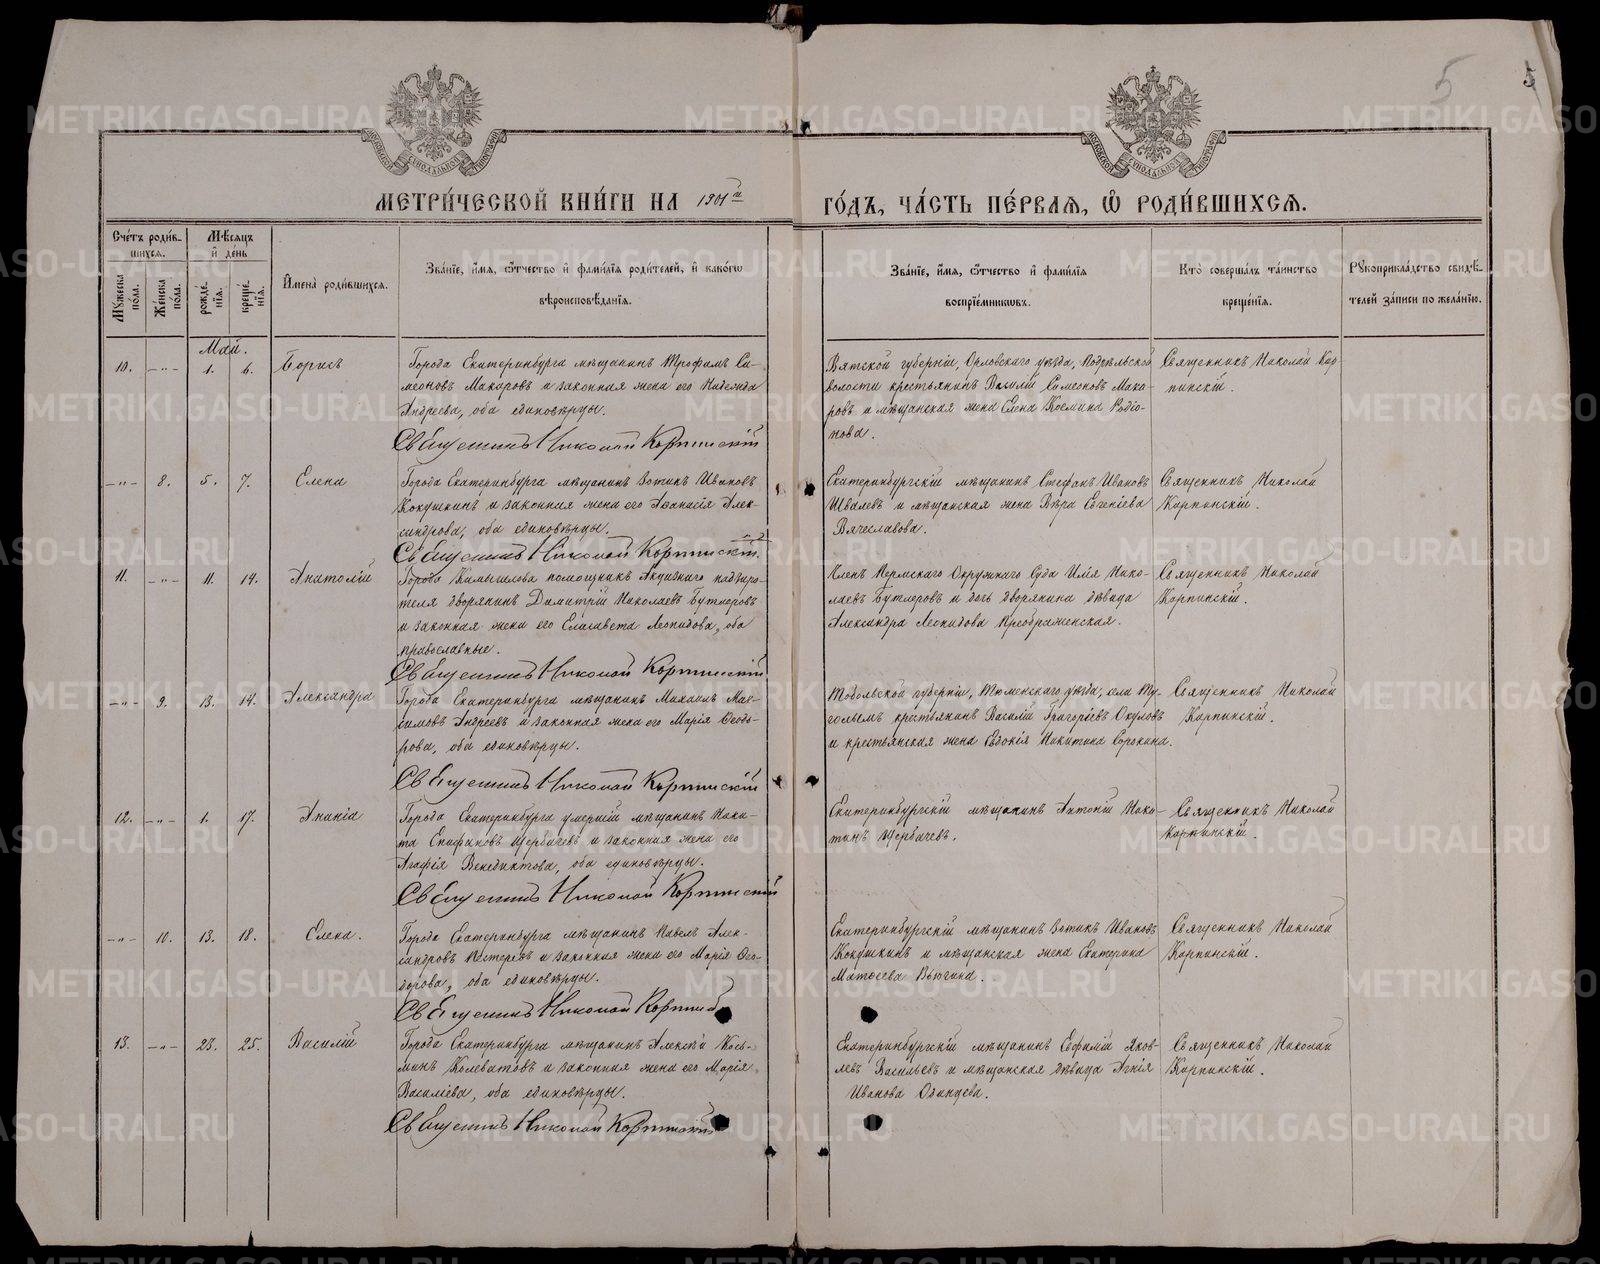 5
5
МЕТРИ́ЧЕСКОЙ КНИ́ГИ НА 1901й
ГО́ДЪ, ЧА́СТЬ ПЕ́РВАЯ, Ѡ҆ РОДИ́ВШИХСЯ.
Сче́тъ роди́в-
шихся.
Мѣ́сяцъ
и҆ де́нь
Мꙋ́жеска по́ла.
Же́нска по́ла.
рожде́-
нїѧ.
креще́-
нїѧ.
И҆мена̀ роди́вшихся.
Зва́нїе, и҆́мя, ѻ҆́тчество и҆ фами́лїя роди́телей, и҆ како́гѡ
вѣроисповѣ́данїя.
Зва́нїе, и҆́мя, ѻ҆́тчество и҆ фами́лїя
воспрїе́мниковъ.
Кто̀ соверша́лъ та́инство
креще́нїя.
Рꙋкоприкла́дство свидѣ́-
телей за́писи по жела́нїю.
Май.
10. —"— 1. 6. Борисъ
Города Екатеринбурга мѣщанинъ Трофимъ Си-
меоновъ Макаровъ и законная жена его Надежда
Андреева, оба единовѣрцы.
Священникъ Николай Корпинскій
Вятской губерніи, Орловскаго уѣзда,
волости крестьянинъ Василій Симеоновъ Мака-
ровъ и мѣщанская жена Елена Космина Родіо-
нова.
Священникъ Николай Кор-
пинскій.
—"— 8. 5. 7. Елена
Города Екатеринбурга мѣщанинъ Зотикъ Ивановъ
Кокушкинъ и законная жена его Алек-
сандрова, оба единовѣрцы.
Священникъ Николай Корпинскій.
Екатеринбургскій мѣщанинъ Стефанъ Ивановъ
Швалевъ и мѣщанская жена Вѣра Евгеніева
Вячеславова.
Священникъ Николай
Корпинскій.
11. —"— 11. 14. Анатолій
Города Камышлова помощникъ Акцизнаго надзира-
теля дворянинъ Димитрій Николаевъ Бутлеровъ
и законная жена его Елисавета Леонидова, оба
православные.
Священникъ Николай Корпинскій
Членъ Пермскаго Окружнаго Суда Илія Нико-
лаевъ Бутлеровъ и дочь дворянина дѣвица
Александра Леонидова Преображенская.
Священникъ Николай
Корпинскій.
—"— 9. 13. 14. Александра
Города Екатеринбурга мѣщанинъ Михаилъ Мак-
симовъ Андреевъ и законная жена его Марія Ѳеодо-
рова, оба единовѣрцы.
Священникъ Николай Корпинскій
Тобольской губерніи, Тюменскаго уѣзда, села Ту-
голымъ крестьянинъ Василій Григорьевъ Окуловъ
и крестьянская жена Евдокія Никитина Сорокина.
Священникъ Николай
Корпинскій.
12. —"— 1. 17. Ананія
Города Екатеринбурга умершій мѣщанинъ Ники-
та Епифановъ Щербачевъ и законная жена его
Агафія Венедиктова, оба единовѣрцы.
Священникъ Николай Корпинскій
Екатеринбургскій мѣщанинъ Антоній Ники-
тинъ Щербачевъ.
Священникъ Николай
Корпинскій.
—"— 10. 13. 18. Елена.
Города Екатеринбурга мѣщанинъ Павелъ Алек-
сандровъ и законная жена его Марія Ѳео-
дорова, оба единовѣрцы.
Священникъ Николай
Екатеринбургскій мѣщанинъ Зотикъ Ивановъ
Кокушкинъ и мѣщанская жена Екатерина
Матѳеева
Священникъ Николай
Корпинскій.
13. —"— 23. 25. Василій
Города Екатеринбурга мѣщанинъ Алексѣй Кось-
минъ Колеватовъ и законная жена его Марія
Василіева, оба единовѣрцы.
Священникъ Николай Корпинскій
Екатеринбургскій мѣщанинъ Евфимій Яков-
левъ Васильевъ и мѣщанская дѣвица Агнія
Иванова Одинцева.
Священникъ Николай
Корпинскій.
METRIKI.GASO-URAL.RU